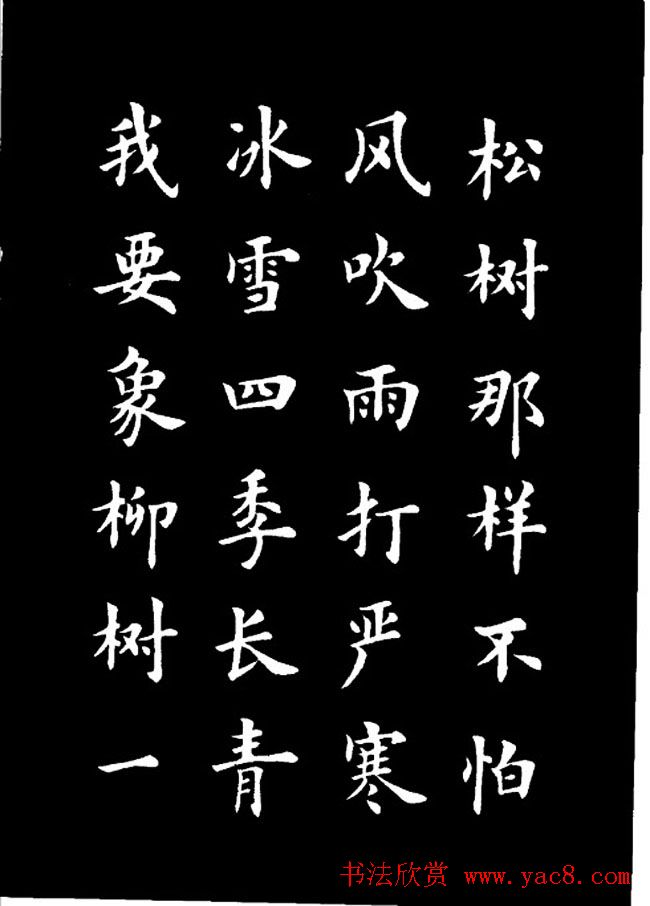 松树那样不怕
风吹雨打严寒
冰雪四季长青
我要象柳树一
书法欣赏 www.yac8.com